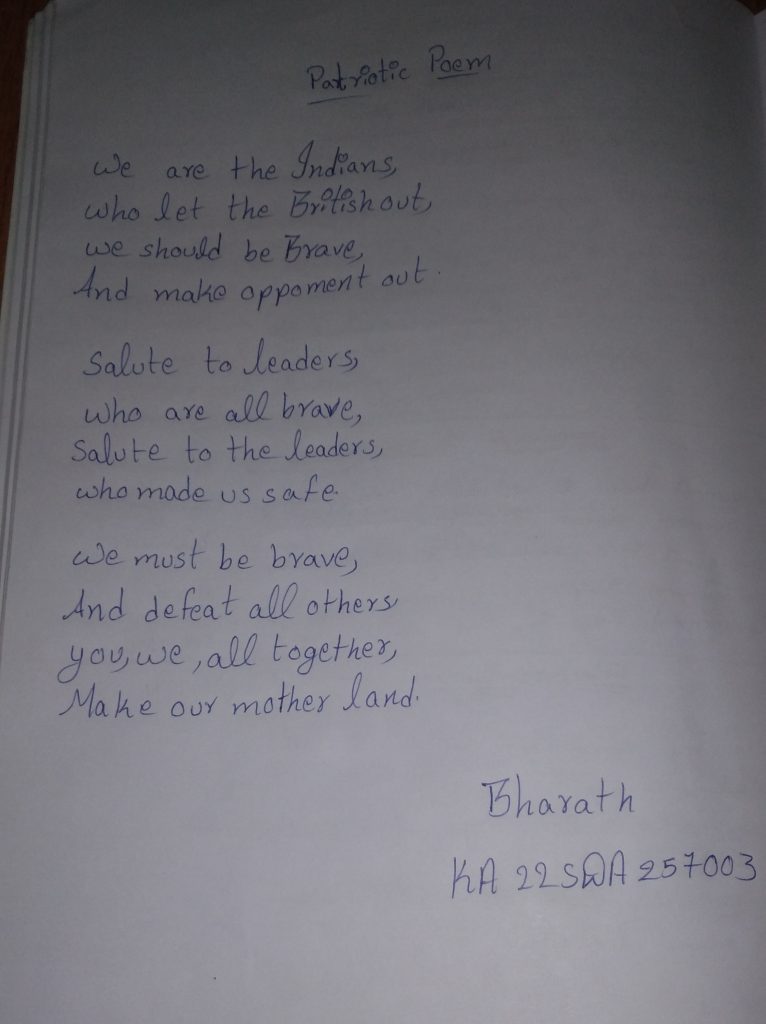 Patriotic Poem
We are the Indians,
who let the British out,
we should be Brave,
And make oppoment out.
Salute to leaders,
who are all brave,
Salute to the leaders,
who made us safe.
We must be brave,
And defeat all others
you, we, all together,
Make our mother land.
Bharath
KA 22SDA 257003